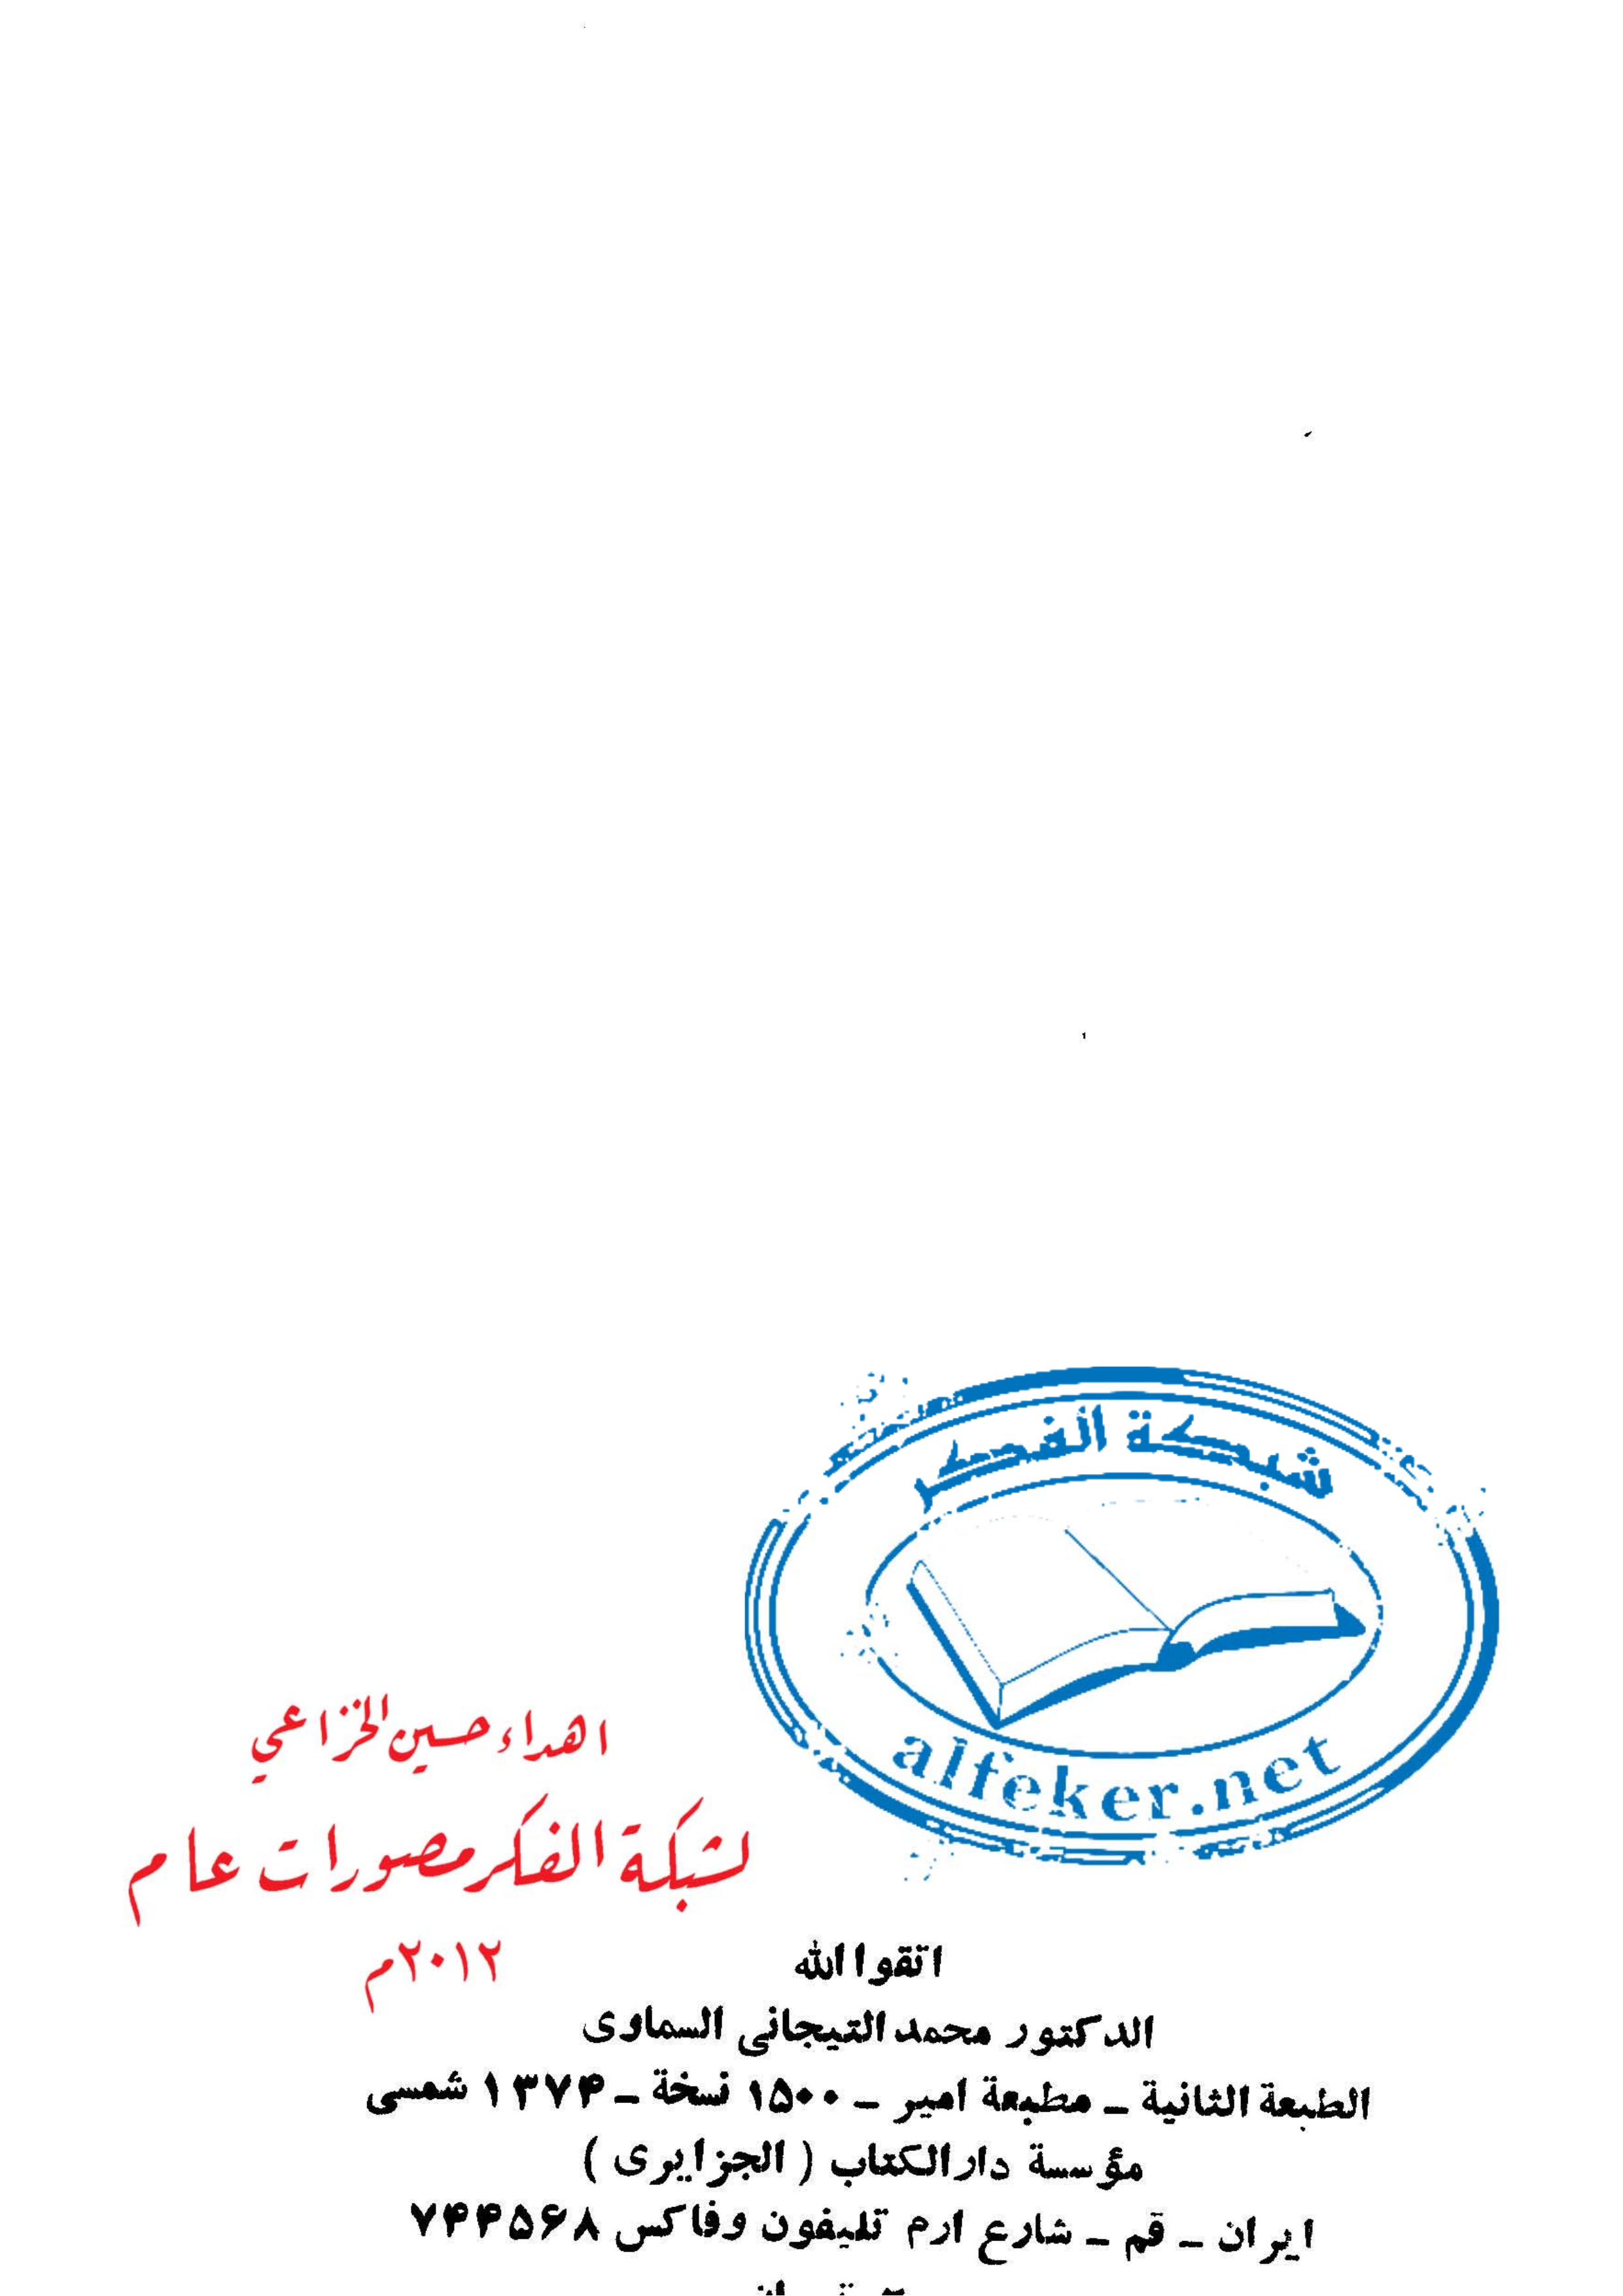 شبكة الفكر
alfeker.net
اهداء حسين الخزاعي
لشبكة الفكر مصورات عام
٢٠١٢م
اتقوا الله
الدكتور محمد التيجانى السماوى
الطبعة الثانية ـ مطبعة امير ـ ۱۵۰۰ نسخة ـ ۱۳۷۴ شمسى
مؤسسة دارالكتاب ( الجزايرى )
ايران ـ قم ـ شارع ارم تليفون وفاكس ۷۴۴۵۶۸